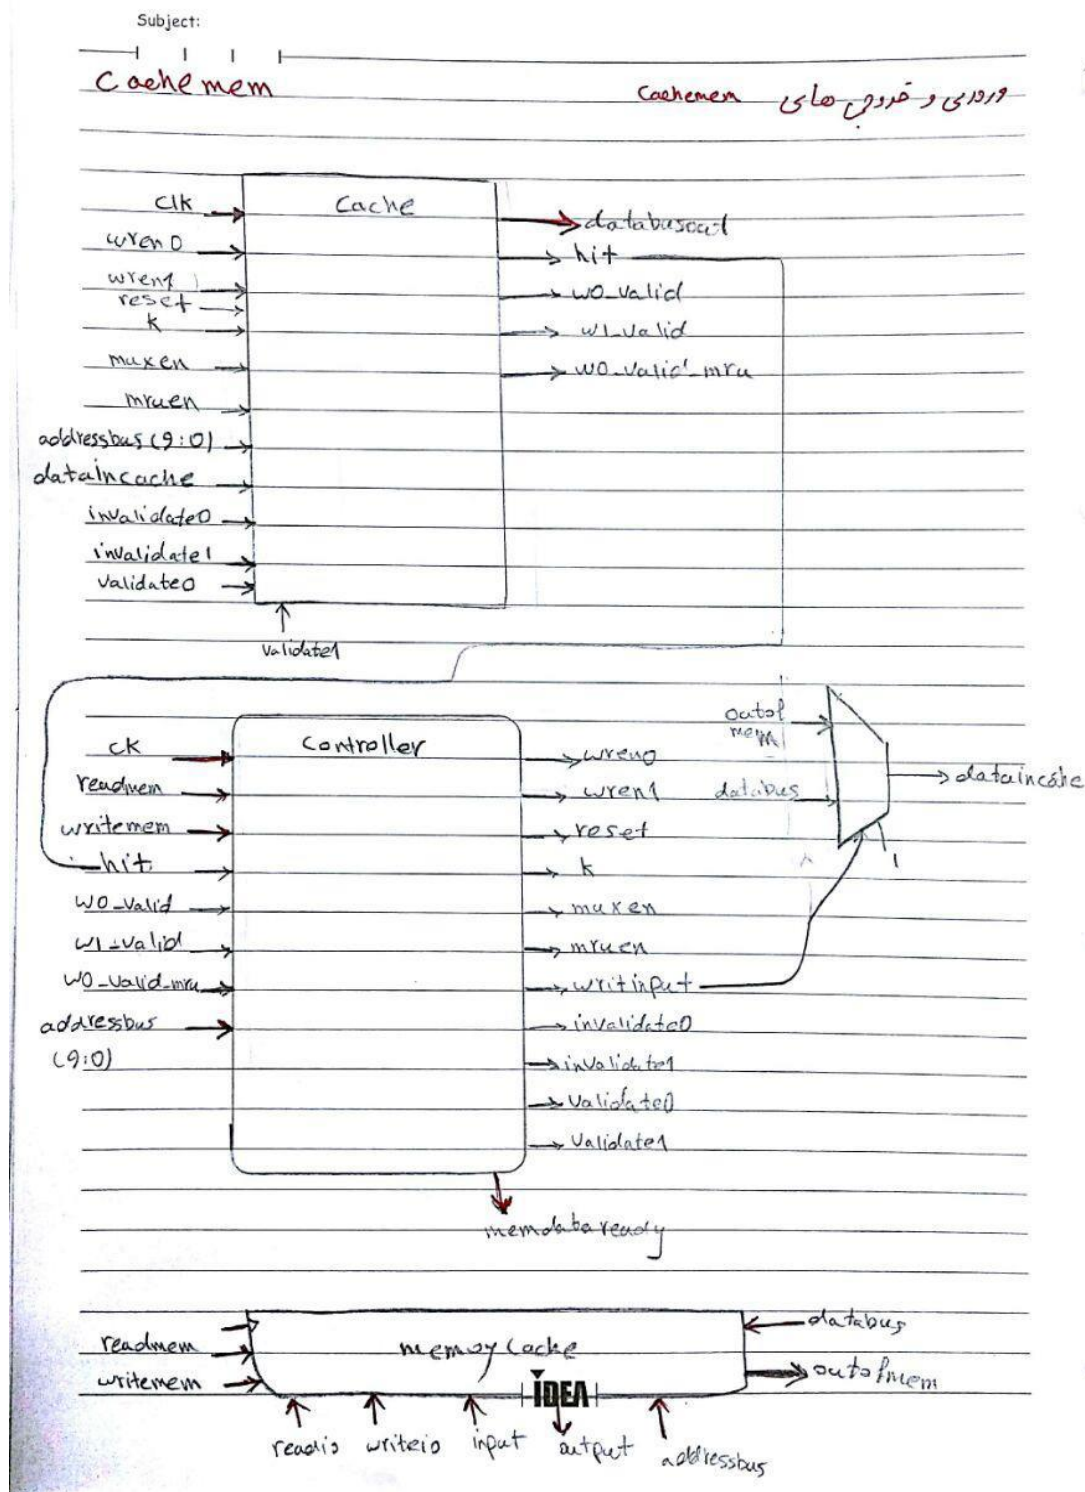 Subject:
Cachemem
Cachemem ورودی و خروجی های
Cache
clk
wren0
wren1
reset
k
muxen
mruen
addressbus (9:0)
dataincache
invalidate0
invalidate1
validate0
validate1
databusout
hit
w0_valid
w1_valid
w0_valid_mru
Controller
ck
readmem
writemem
hit
w0_valid
w1_valid
w0_valid_mru
addressbus
(9:0)
wren0
wren1
reset
k
muxen
mruen
writinput
invalidate0
invalidate1
validate0
validate1
memdataready
outof
mem
databus
1
dataincache
memoy cache
readmem
writemem
databus
outofmem
IDEA
readio
writeio
input
output
addressbus